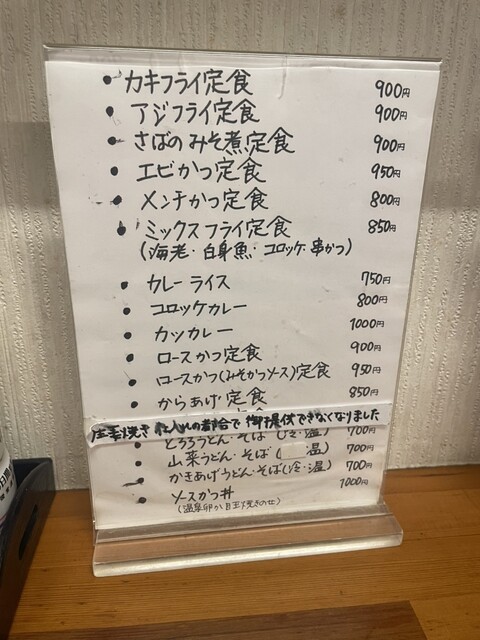 ・カキフライ定食 900円
・アジフライ定食 900円
・さばのみそ煮定食 900円
・エビかつ定食 950円
・メンチかつ定食 800円
・ミックスフライ定食 850円
(海老・白身魚・コロッケ・串かつ)
・カレーライス 750円
・コロッケカレー 800円
・カツカレー 1000円
・ロースかつ定食 900円
・ロースかつ(みそかつソース)定食 950円
・からあげ定食 850円
仕入れの都合で御提供できなくなりました
・とろろうどん・そば(冷・温) 700円
・山菜うどん・そば( 温) 700円
・かきあげうどん・そば(冷・温) 700円
・ソースかつ丼 1000円
(温泉卵か目玉焼きのせ)